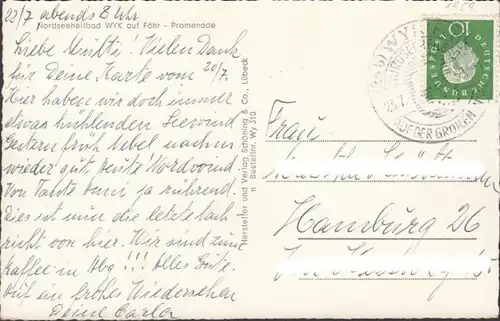 22/7 abends 8 Uhr
Nordseeheilbad WYK auf Föhr - Promenade
Liebe Mutti! Vielen Dank
für Deine Karte vom 20/7.
Hier haben wir doch immer
etwas kühlenden Seewind
Gestern früh Nebel nachm
wieder gut heute Nordwind.
Von Tante ja rührend.
Dies ist nun die letzte Nach
richt von hier. Wir sind zum
Kaffee in Hbg!!! Alles Gute.
Auf ein frohes Wiedersehen
Deine Carla
Hersteller und Verlag Schöning & Co., Lübeck
Bestellnr. Wy 310
DEUTSCHE BUNDESPOST
10
WYK
23.7.
AUF DER GRÜNEN
Frau
Hamburg 26